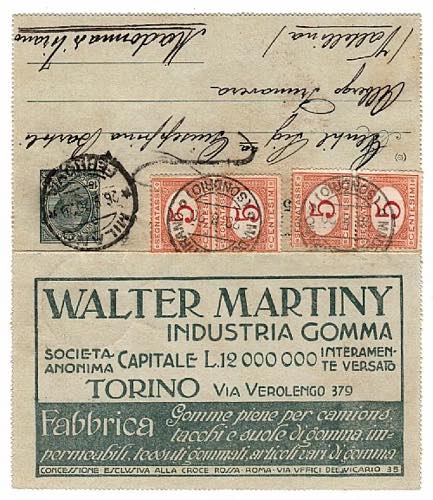 Gentil Sig.ra Giuseppina Bartoli
Albergo Primavera
(Valtellina)
Madonna di Tirano
MILANO
SEGNATASSE 5 CENTESIMI
SEGNATASSE 5 CENTESIMI
SEGNATASSE 5 CENTESIMI
SEGNATASSE 5 CENTESIMI
(SONDRIO)
WALTER MARTINY
INDUSTRIA GOMMA
SOCIETA- ANONIMA CAPITALE L.12 000 000 INTERAMEN- TE VERSATO
TORINO VIA VEROLENGO 379
Fabbrica Gomme piene per camions,
tacchi e suole di gomma, im-
permeabili, tessuti gommati, articoli vari di gomma
CONCESSIONE ESCLUSIVA ALLA CROCE ROSSA - ROMA - VIA UFFICI DEL VICARIO 35